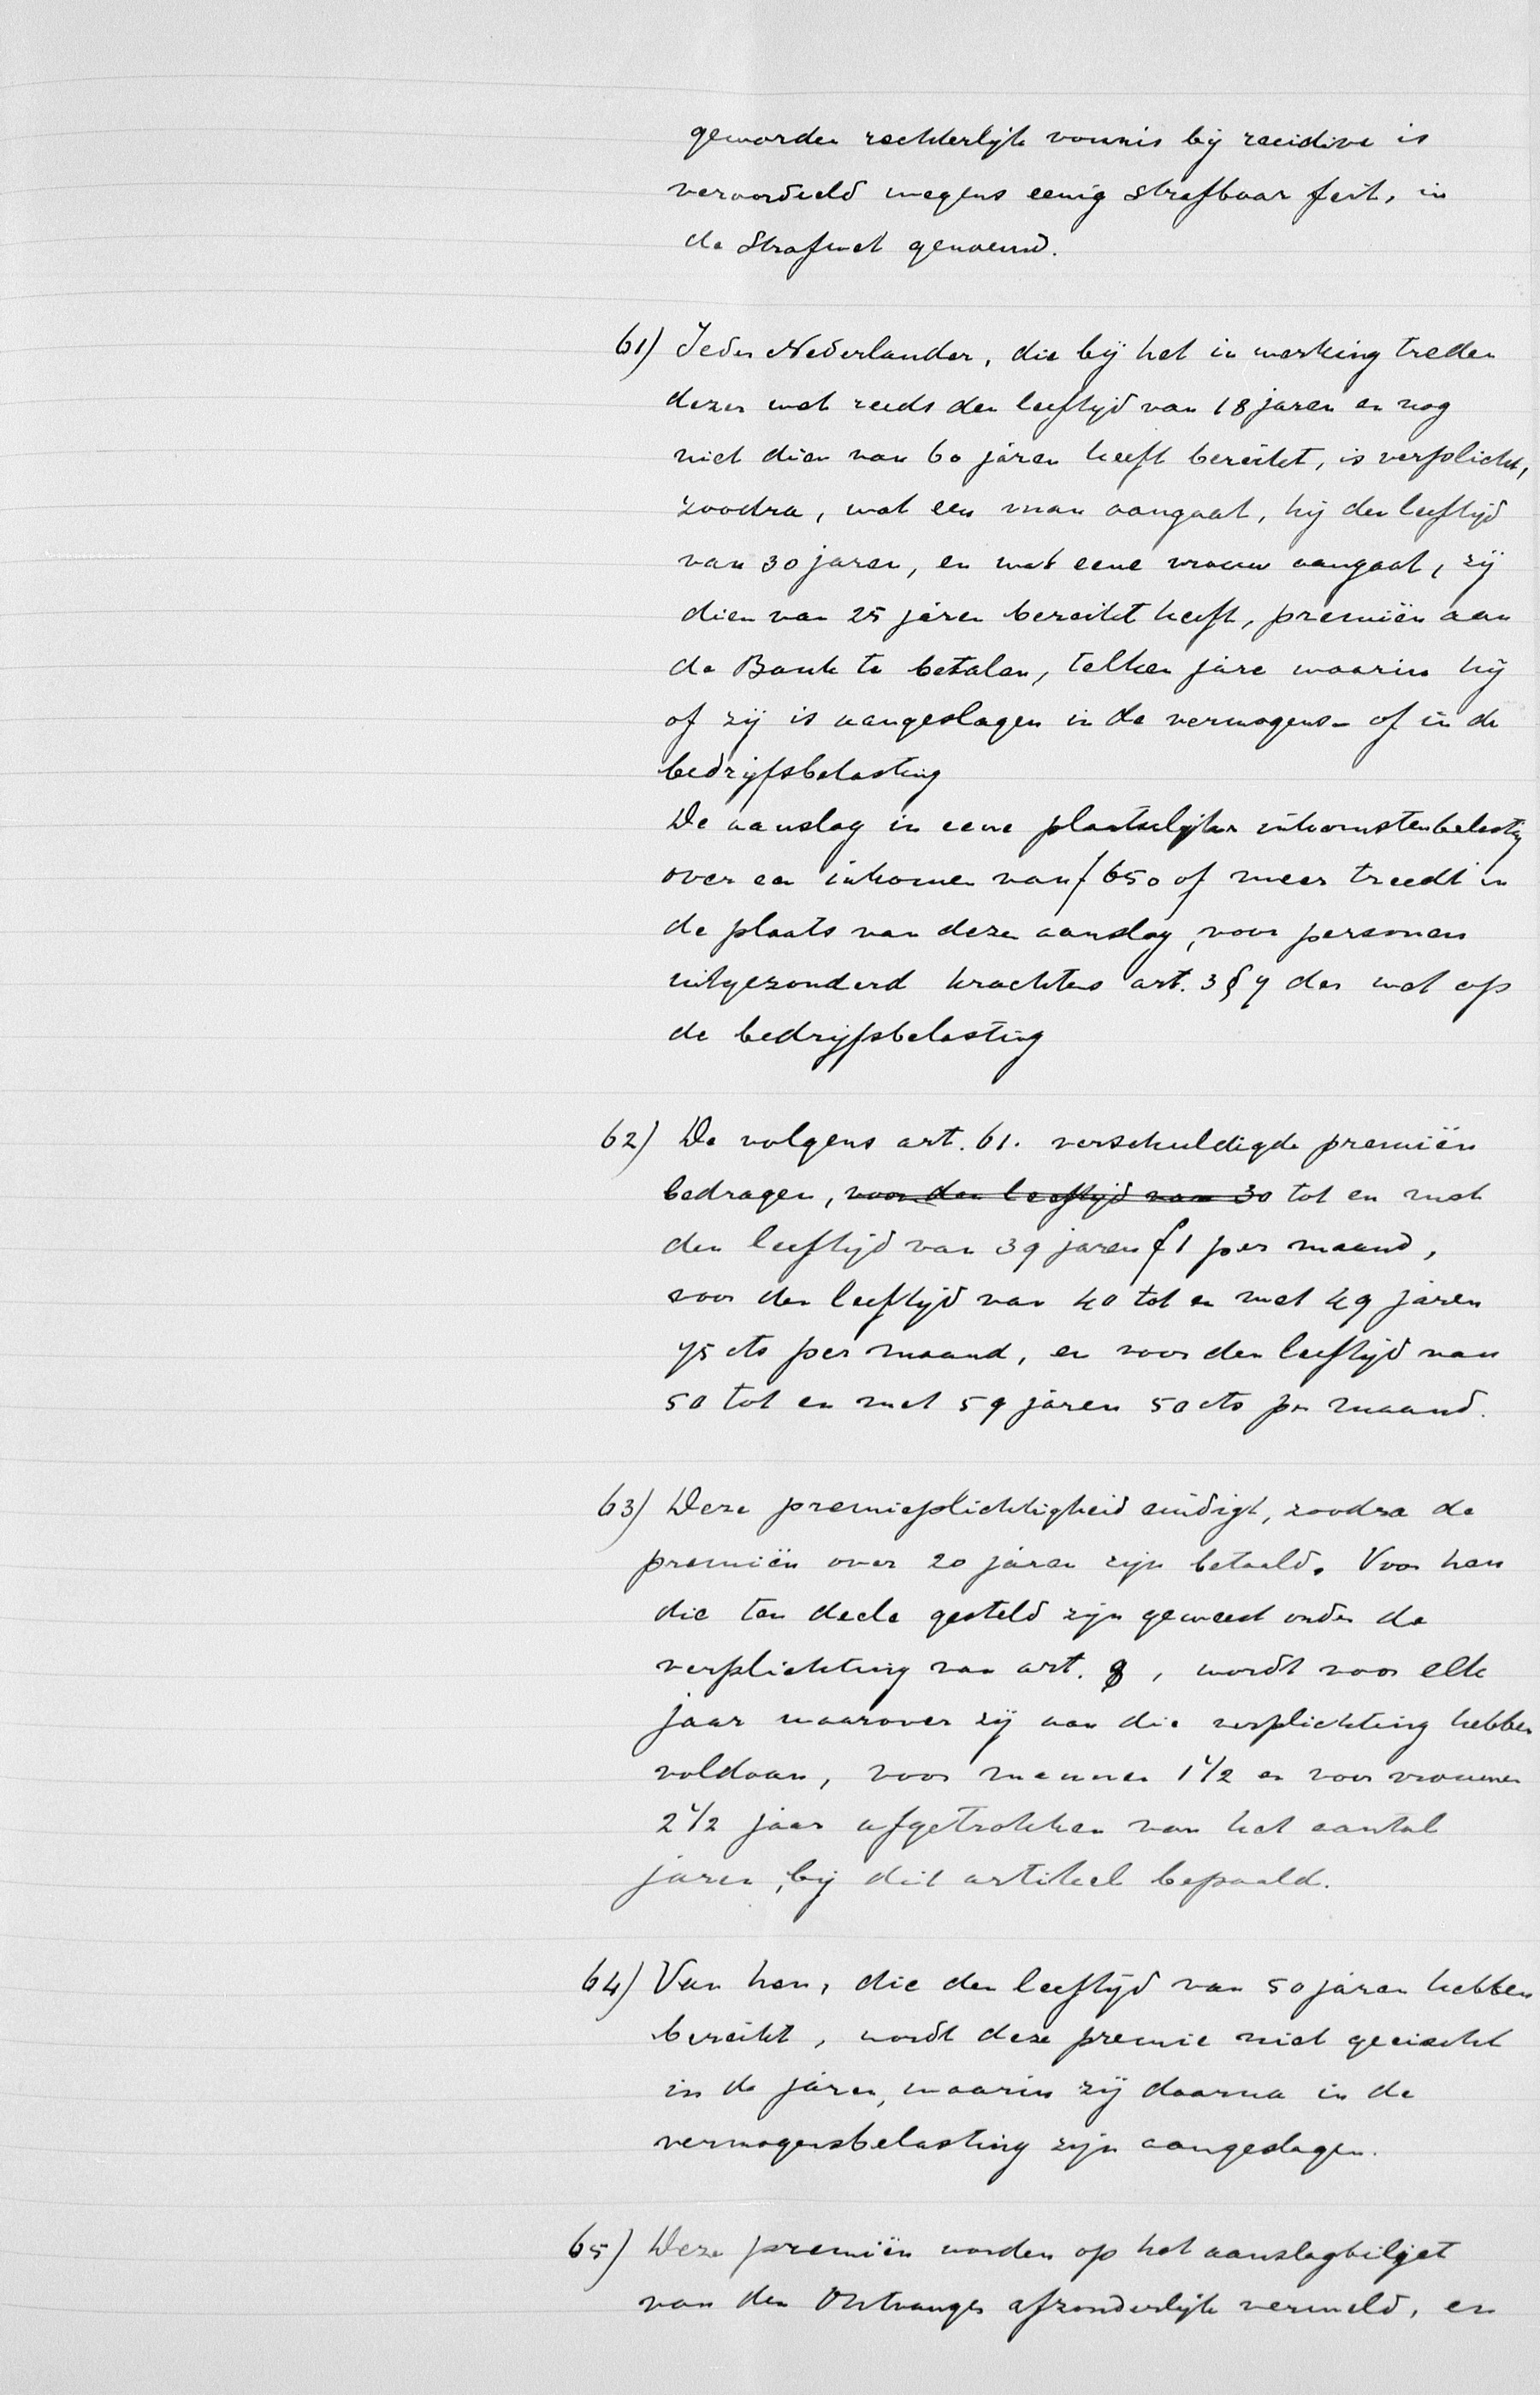 geworden rechterlijk vonnis bij recidive is
veroordeeld wegens eenig strafbaar feit, in
de Strafwet genoemd.
61) Ieder Nederlander, die bij het in werking treden
dezer wet reeds den leeftijd van 18 jaren en nog
niet dien van 60 jaren heeft bereikt, is verplicht,
zoodra, wat een man aangaat, hij den leeftijd
van 30 jaren, en wat eene vrouw aangaat, zij
dien van 25 jaren bereikt heeft, premiën aan
de Bank te betalen, telken jare waarin hij
of zij is aangeslagen in de vermogens- of in de
bedrijfsbelasting
De aanslag in eene plaatselijke inkomstenbelasting
over een inkomen van f 650 of meer treedt in
de plaats van dezen aanslag, voor personen
uitgezonderd krachtens art. 3 § 7 der wet op
de bedrijfsbelasting
62) De volgens art. 61. verschuldigde premiën
bedragen, voor den leeftijd van 30 tot en met
den leeftijd van 39 jaren f 1 per maand,
voor den leeftijd van 40 tot en met 49 jaren
75 cts per maand, en voor den leeftijd van
50 tot en met 59 jaren 50 cts per maand.
63) Deze premieplichtigheid eindigt, zoodra de
premiën over 20 jaren zijn betaald. Voor hen
die ten deele gesteld zijn geweest onder de
verplichting van art. 8, wordt voor elk
jaar waarover zij aan die verplichting hebben
voldaan, voor mannen 1 1/2 en voor vrouwen
2 1/2 jaar afgetrokken van het aantal
jaren, bij dit artikel bepaald.
64) Van hen, die den leeftijd van 50 jaren hebben
bereikt, wordt deze premie niet geeischt
in de jaren, waarin zij daarna in de
vermogensbelasting zijn aangeslagen.
65) Deze premiën worden op het aanslagbiljet
van den Ontvanger afzonderlijk vermeld, en